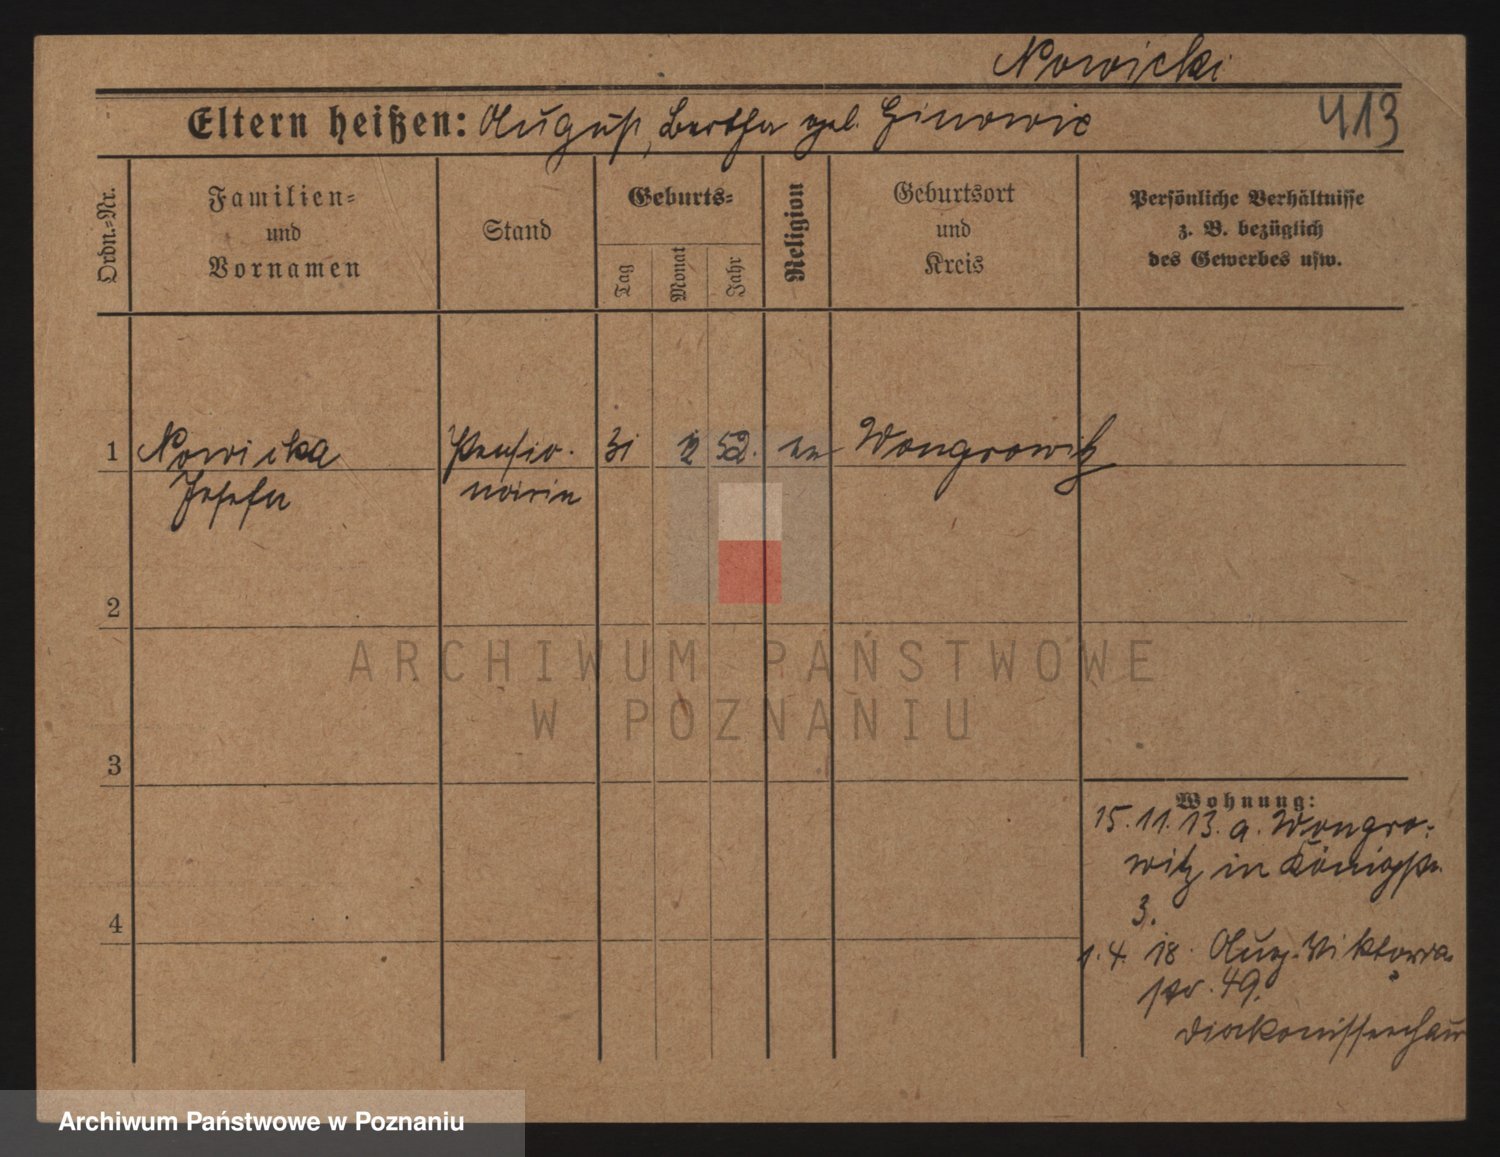 Nowicki
Eltern heißen: August, Bertha geb. Ginowic
413
Ordn.=Nr.
Familien=
und
Vornamen
Stand
Geburts=
Tag
Monat
Jahr
Religion
Geburtsort
und
Kreis
Persönliche Verhältnisse
z. B. bezüglich
des Gewerbes usw.
1 Nowicka Pensio- 31 52. Wongrowitz
Josefa närin
2
ARCHIWUM PAŃSTWOWE
W POZNANIU
3
Wohnung:
15.11.13. a. Wongro-
witz in Königstr.
3.
4
1.4.18. Aug. Viktoria
str. 49.
Diakonissenhaus
Archiwum Państwowe w Poznaniu